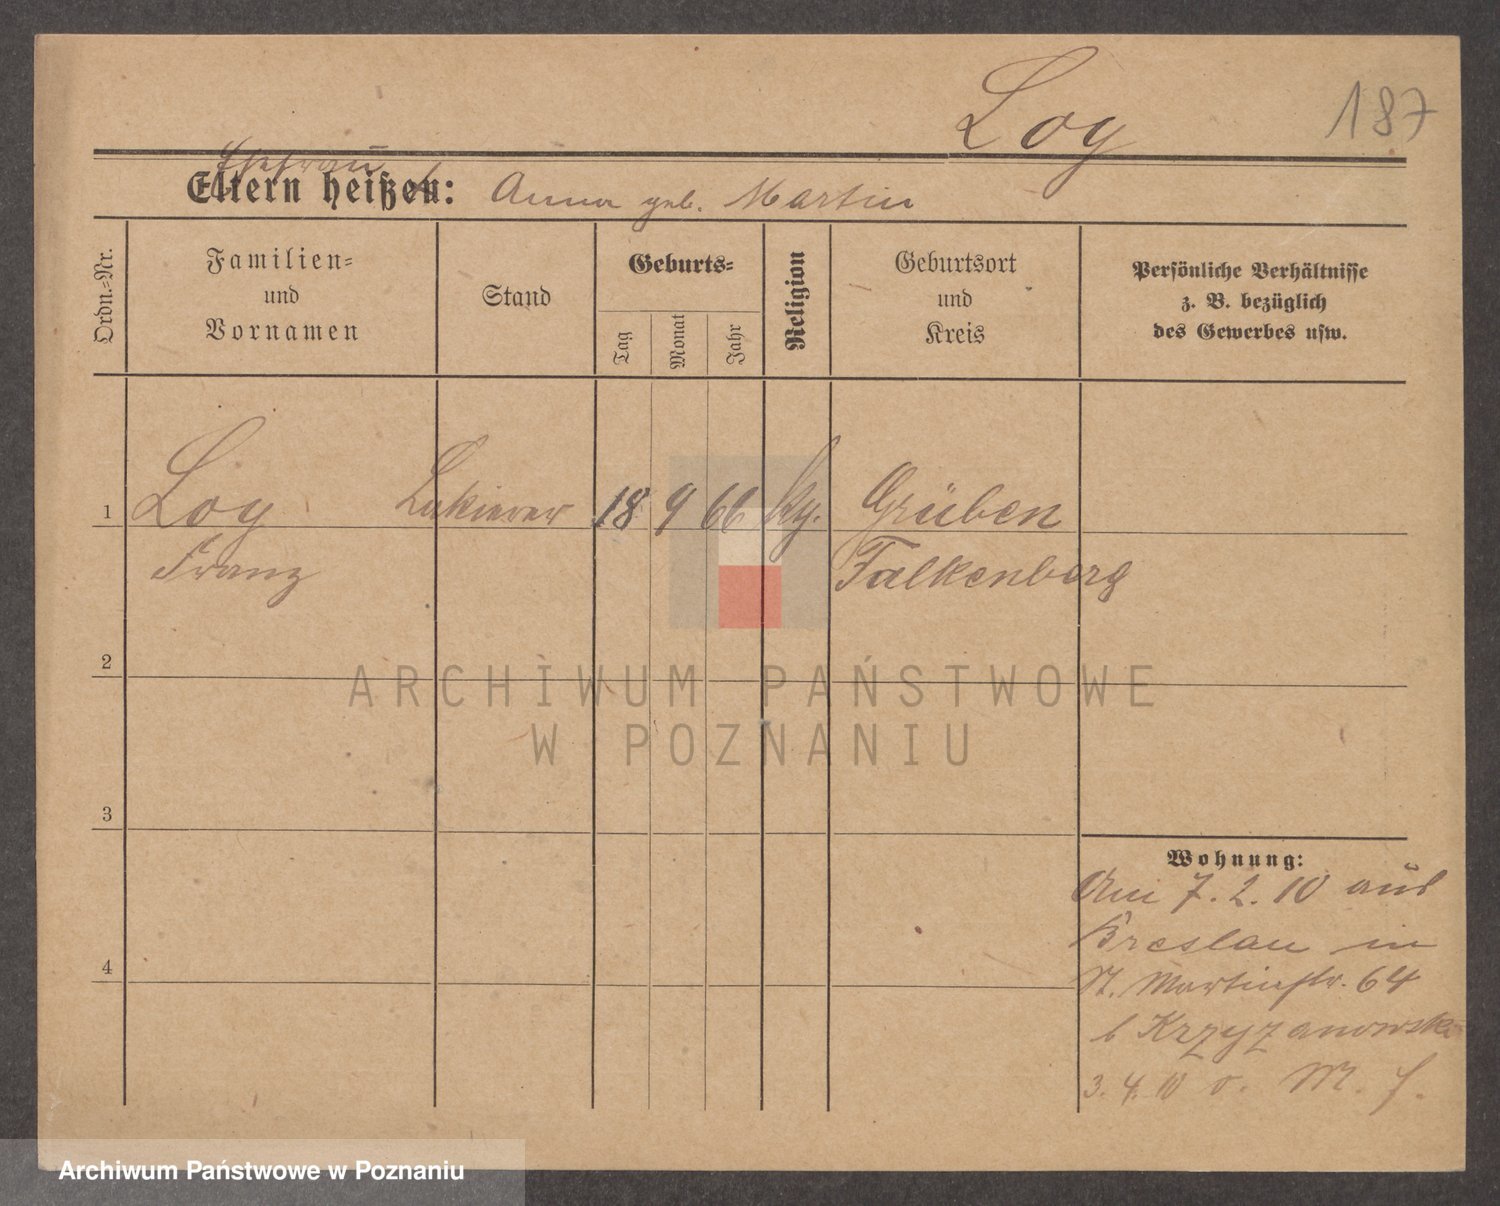 Log 187
Ehefrau
Eltern heißen: Anna geb. Martin
Ordn.=Nr.
Familien=
und
Vornamen
Stand
Geburts=
Tag
Monat
Jahr
Religion
Geburtsort
und
Kreis
Persönliche Verhältnisse
z. B. bezüglich
des Gewerbes usw.
1 Log 18 9 66 Grüben
Franz Falkenberg
2
3
4
Wohnung:
Am 7. 2. 10 aus
Breslau in
St. Martinstr. 64
b Krzyzanowski
3. 4. 10
ARCHIWUM PAŃSTWOWE
W POZNANIU
Archiwum Państwowe w Poznaniu